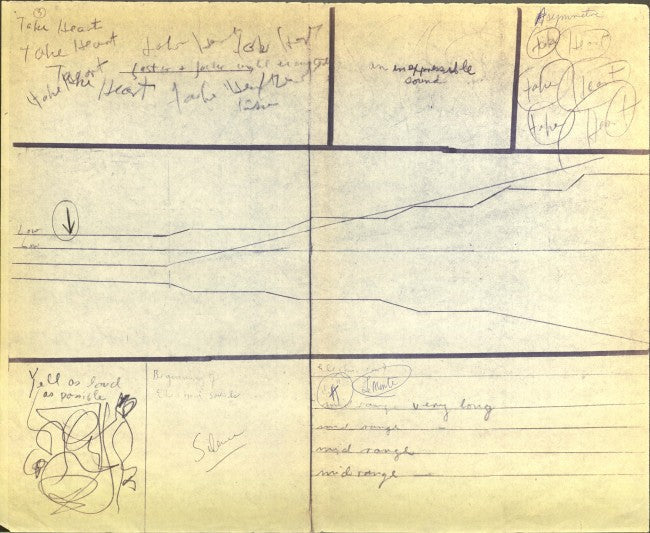 3
Take Heart
Take Heart
Take Heart
Take Heart
Take Heart
Take Heart
faster + faster until
Take Heart
an inexpressible
sound
Asymmetric
Take Heart
Take Heart
Take Heart
Low
Low
Yell as loud
as posible
Beginning of
Silence
"A"
1 Minute
mid range very long
mid range —
mid range
mid range —